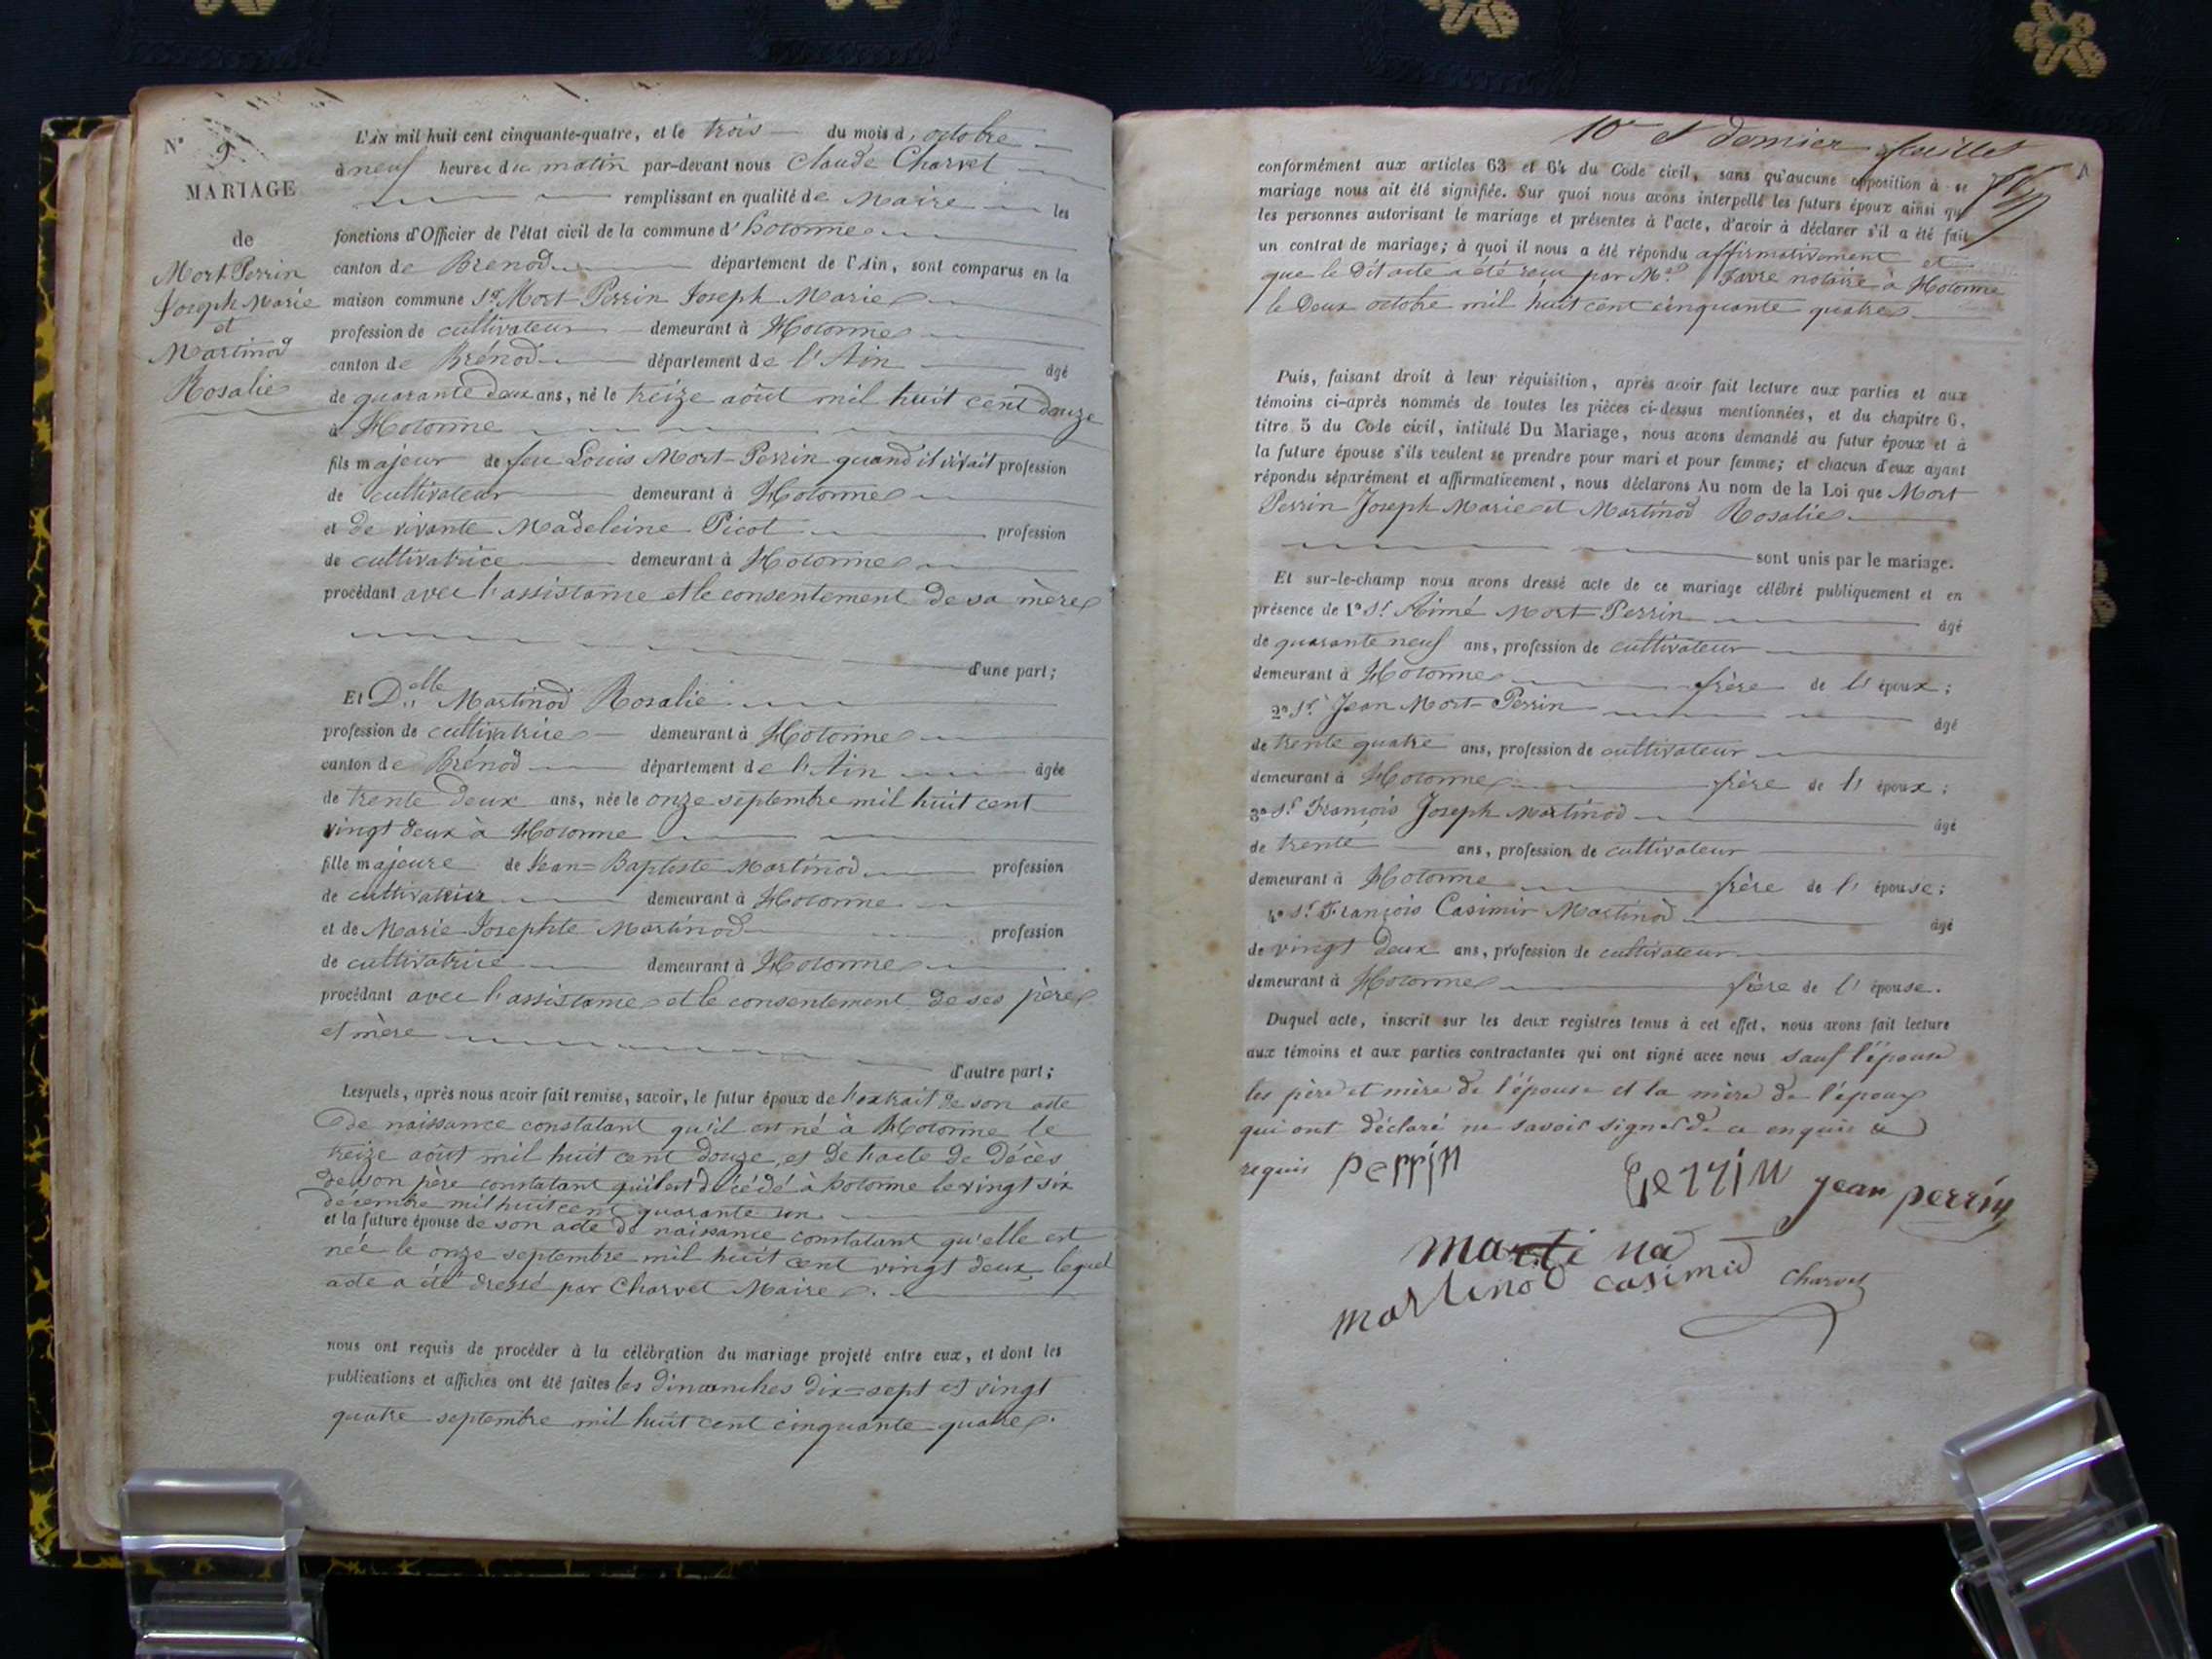 N° 9
MARIAGE
de
Mort Perrin
Joseph Marie
et
Martinod
Rosalie
L'AN mil huit cent cinquante-quatre, et le trois du mois d'octobre
à neuf heures du matin par-devant nous Claude Charvet
remplissant en qualité de Maire les
fonctions d'Officier de l'état civil de la commune d'hotonne
canton de Brenod département de l'Ain, sont comparus en la
maison commune Sr Mort-Perrin Joseph Marie
profession de cultivateur demeurant à Hotonne
canton de Brénod département de l'Ain âgé
de quarante deux ans, né le treize août mil huit cent douze
à Hotonne
fils majeur de feu Louis Mort-Perrin quand il vivait profession
de cultivateur demeurant à Hotonne
et de vivante Madeleine Picot profession
de cultivatrice demeurant à Hotonne
procédant avec l'assistance et le consentement de sa mère
d'une part;
Et Delle Martinod Rosalie
profession de cultivatrice demeurant à Hotonne
canton de Brénod département de l'Ain âgée
de trente deux ans, née le onze septembre mil huit cent
vingt deux à Hotonne
fille majeure de Jean=Baptiste Martinod profession
de cultivateur demeurant à Hotonne
et de Marie Josephte Martinod profession
de cultivatrice demeurant à Hotonne
procédant avec l'assistance et le consentement de ses père
et mère
d'autre part;
Lesquels, après nous avoir fait remise, savoir, le futur époux de l'extrait de son acte
de naissance constatant qu'il est né à Hotonne le
treize août mil huit cent douze, et de l'acte de décès
de son père constatant qu'il est décédé à hotonne le vingt six
décembre mil huit cent quarante un
et la future épouse de son acte de naissance constatant qu'elle est
née le onze septembre mil huit cent vingt deux, lequel
acte a été dressé par Charvet Maire.
nous ont requis de procéder à la célébration du mariage projeté entre eux, et dont les
publications et affiches ont été faites les dimanches dix=sept et vingt
quatre septembre mil huit cent cinquante quatre.
10e et dernier feuillet
conformément aux articles 63 et 64 du Code civil, sans qu'aucune opposition à ce
mariage nous ait été signifiée. Sur quoi nous avons interpellé les futurs époux ainsi que
les personnes autorisant le mariage et présentes à l'acte, d'avoir à déclarer s'il a été fait
un contrat de mariage; à quoi il nous a été répondu affirmativement et
que le dit acte a été reçu par Me Favre notaire à Hotonne
le deux octobre mil huit cent cinquante quatre
Puis, faisant droit à leur réquisition, après avoir fait lecture aux parties et aux
témoins ci-après nommés de toutes les pièces ci-dessus mentionnées, et du chapitre 6,
titre 5 du Code civil, intitulé Du Mariage, nous avons demandé au futur époux et à
la future épouse s'ils veulent se prendre pour mari et pour femme; et chacun d'eux ayant
répondu séparément et affirmativement, nous déclarons Au nom de la Loi que Mort
Perrin Joseph Marie et Martinod Rosalie
sont unis par le mariage.
Et sur-le-champ nous avons dressé acte de ce mariage célébré publiquement et en
présence de 1° Sr Aimé Mort-Perrin âgé
de quarante neuf ans, profession de cultivateur
demeurant à Hotonne frère de l'époux;
2° Sr Jean Mort-Perrin âgé
de trente quatre ans, profession de cultivateur
demeurant à Hotonne frère de l'époux;
3° Sr François Joseph Martinod âgé
de trente ans, profession de cultivateur
demeurant à Hotonne frère de l'épouse;
4° Sr François Casimir Martinod âgé
de vingt deux ans, profession de cultivateur
demeurant à Hotonne frère de l'épouse.
Duquel acte, inscrit sur les deux registres tenus à cet effet, nous avons fait lecture
aux témoins et aux parties contractantes qui ont signé avec nous sauf l'épouse
les père et mère de l'épouse et la mère de l'époux
qui ont déclaré ne savoir signer de ce enquis et
requis perrin
Perrin jean perrin
martinod
martinod casimid Charvet